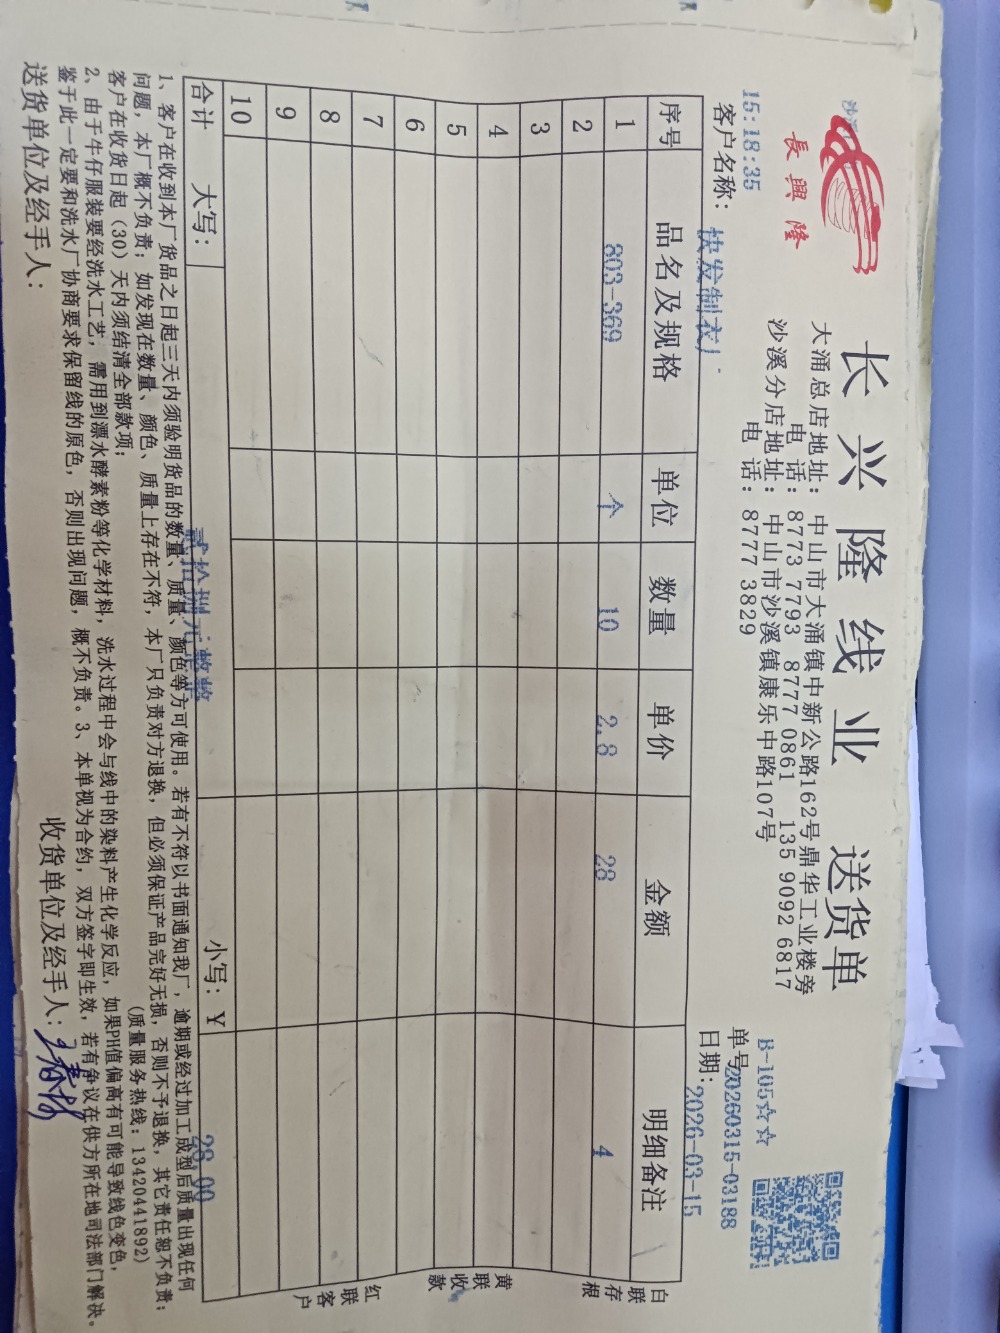 長興隆
长兴隆线业 送货单
大涌总店地址：中山市大涌镇中新公路162号鼎华工业楼旁
电 话：8773 7793 8777 0861 135 9092 6817
沙溪分店地址：中山市沙溪镇康乐中路107号
电 话：8777 3829
B-105☆☆
15:18:35
单号20260315-03188
客户名称：快发制衣厂
日期：2026-03-15
序号 品名及规格 单位 数量 单价 金额 明细备注
1 803-369 个 10 2.8 28 4
2
3
4
5
6
7
8
9
10
合计 大写：贰拾捌元整 小写：￥28.00
白联存根
黄联收款
红联客户
1、客户在收到本厂货品之日起三天内须验明货品的数量、质量、颜色等方可使用。若有不符以书面通知我厂，逾期或经过加工成型后质量出现任何
问题，本厂概不负责；如发现在数量、颜色、质量上存在不符，本厂只负责对方退换，但必须保证产品完好无损，否则不予退换，其它责任恕不负责；
客户在收货日起（30）天内须结清全部款项；（质量服务热线：13420441892）
2、由于牛仔服装要经洗水工艺，需用到漂水酵素粉等化学材料，洗水过程中会与线中的染料产生化学反应，如果PH值偏高有可能导致线色变色，
鉴于此一定要和洗水厂协商要求保留线的原色，否则出现问题，概不负责。3、本单视为合约，双方签字即生效，若有争议在供方所在地司法部门解决。
送货单位及经手人： 收货单位及经手人：